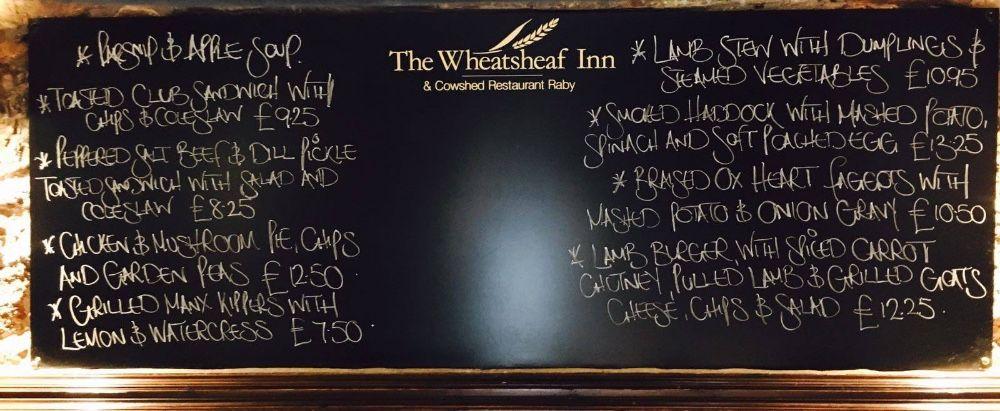 * PARSNIP & APPLE SOUP.
* TOASTED CLUB SANDWICH WITH
CHIPS & COLESLAW £9.25
* PEPPERED SALT BEEF & DILL PICKLE
TOASTED SANDWICH WITH SALAD AND
COLESLAW £8.25
* CHICKEN & MUSHROOM PIE, CHIPS
AND GARDEN PEAS £12.50
* GRILLED MANX KIPPERS WITH
LEMON & WATERCRESS £7.50
The Wheatsheaf Inn
& Cowshed Restaurant Raby
* LAMB STEW WITH DUMPLINGS &
STEAMED VEGETABLES £10.95
* SMOKED HADDOCK WITH MASHED POTATO,
SPINACH AND SOFT POACHED EGG £13.25
* BRAISED OX HEART FAGGOTS WITH
MASHED POTATO & ONION GRAVY £10.50
* LAMB BURGER, WITH SPICED CARROT
CHUTNEY, PULLED LAMB & GRILLED GOATS
CHEESE, CHIPS & SALAD £12.25.